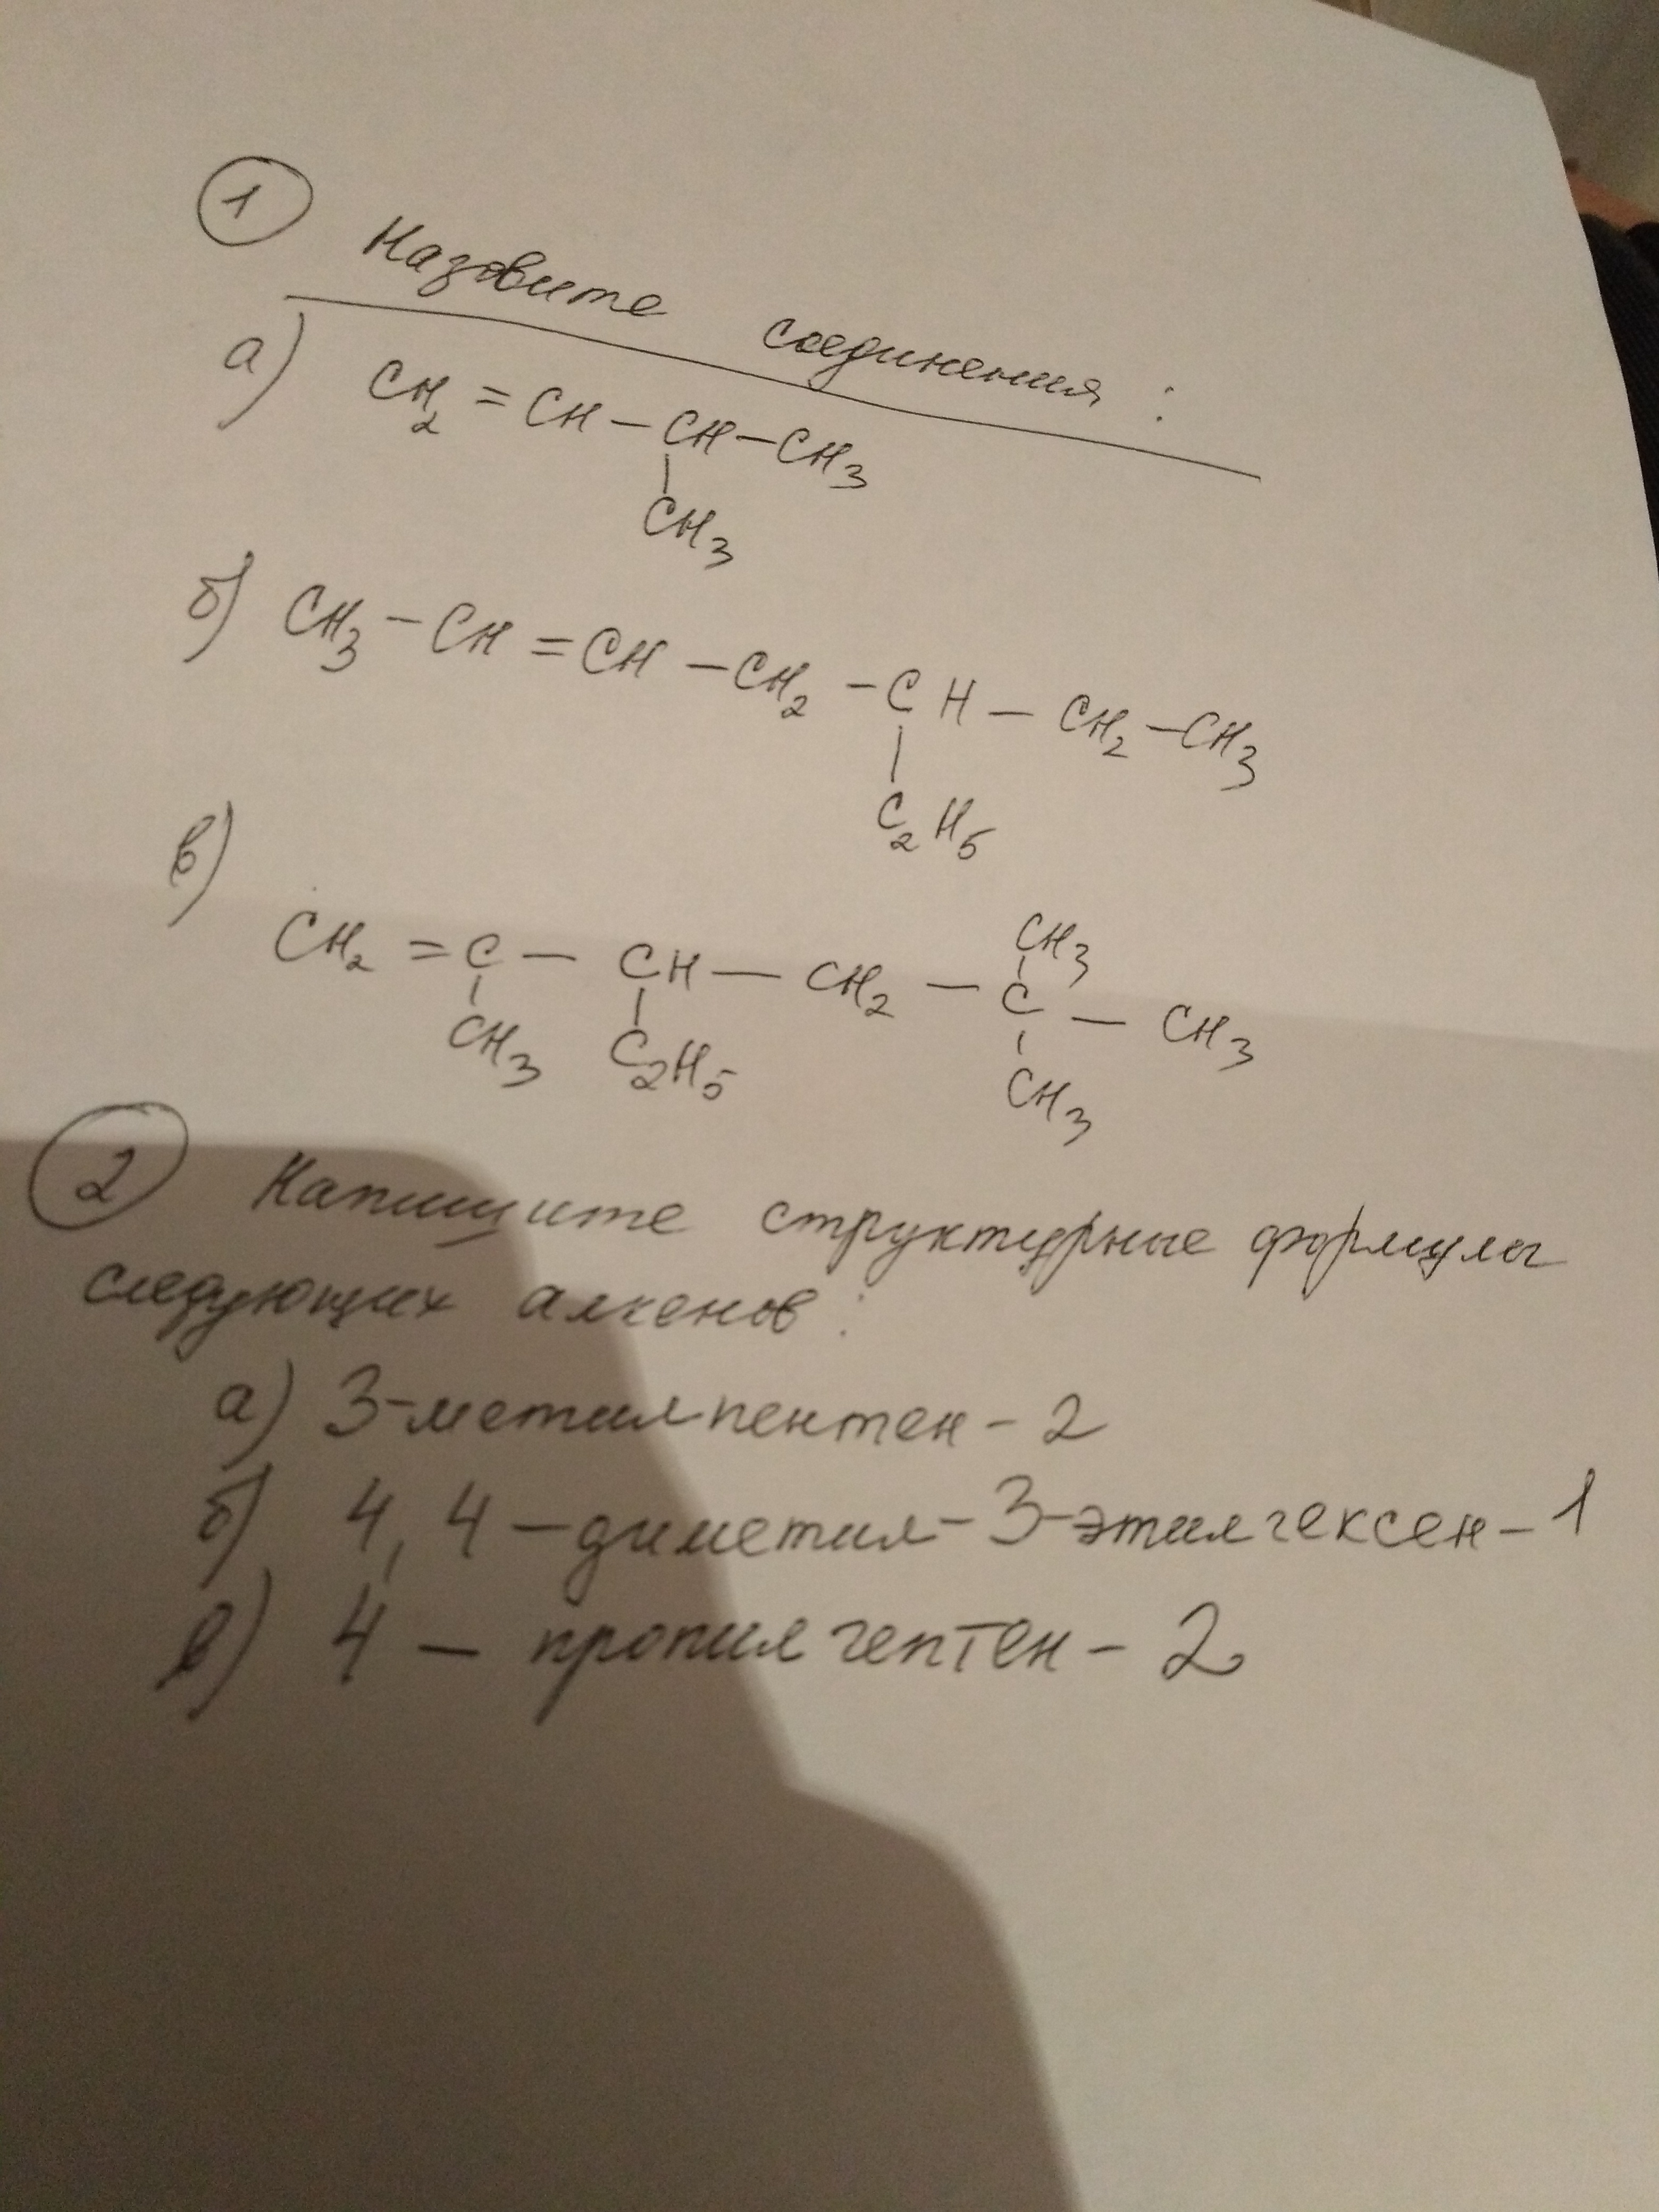 1 Назовите соединения:
а) CH2 = CH – CH – CH3
CH3
б) CH3 – CH = CH – CH2 – CH – CH2 – CH3
C2H5
в)
CH3
CH2 = C – CH – CH2 – C – CH3
CH3 C2H5 CH3
2 Напишите структурные формулы
следующих алкенов:
а) 3-метилпентен-2
б) 4,4-диметил-3-этилгексен-1
в) 4-пропилгептен-2